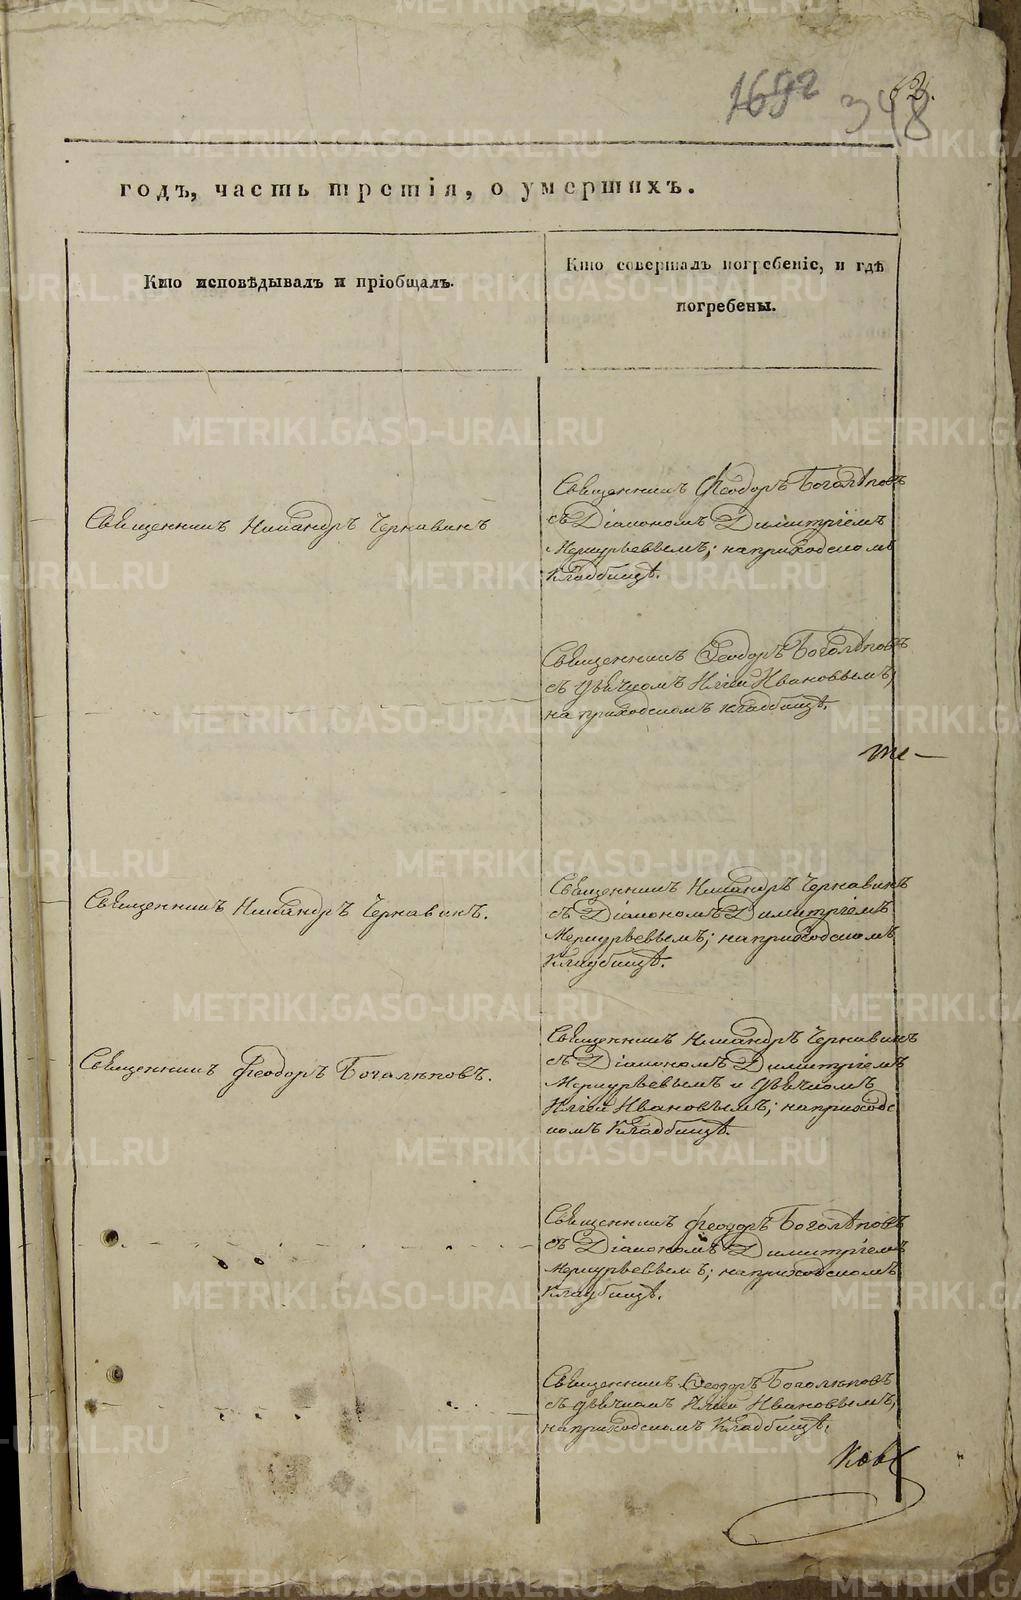 1692
348
62.
годъ, часть третія, о умершихъ.
Кто исповѣдывалъ и пріобщалъ.
Кто совершалъ погребеніе, и гдѣ
погребены.
Священникъ Никандръ Чернавинъ
Священникъ Феодоръ Боголѣповъ
съ Діакономъ Димитріемъ
Меркурьевымъ; на приходскомъ
Кладбищѣ.
Священникъ Ѳеодоръ Боголѣповъ
съ дьячкомъ Иліей Ивановымъ,
на приходскомъ кладбищѣ.
те—
Священникъ Никандръ Чернавинъ.
Священникъ Никандръ Чернавинъ
съ Діакономъ Димитріемъ
Меркурьевымъ; на приходскомъ
Кладбищѣ.
Священникъ Феодоръ Боголѣповъ.
Священникъ Никандръ Чернавинъ
съ Діакономъ Димитріемъ
Меркурьевымъ и дьячкомъ
Иліей Ивановымъ; на приходс
комъ Кладбищѣ.
Священникъ Феодоръ Боголѣповъ
съ Діакономъ Димитріемъ
Меркурьевымъ; на приходскомъ
Кладбищѣ.
Священникъ Ѳеодоръ Боголѣповъ
съ дьячкомъ Иліей Ивановымъ,
на приходскомъ Кладбищѣ.
METRIKI.GASO-URAL.RU